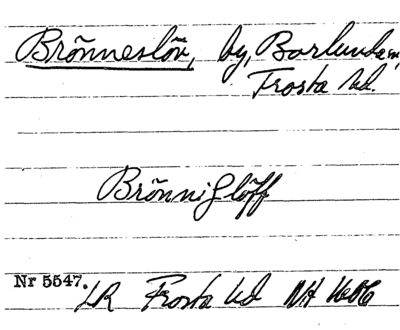 Brönneslöv, by, Borlunda sn,
Frosta hd.
Brönnislöff
Nr 5547.
LR Frosta hd NH